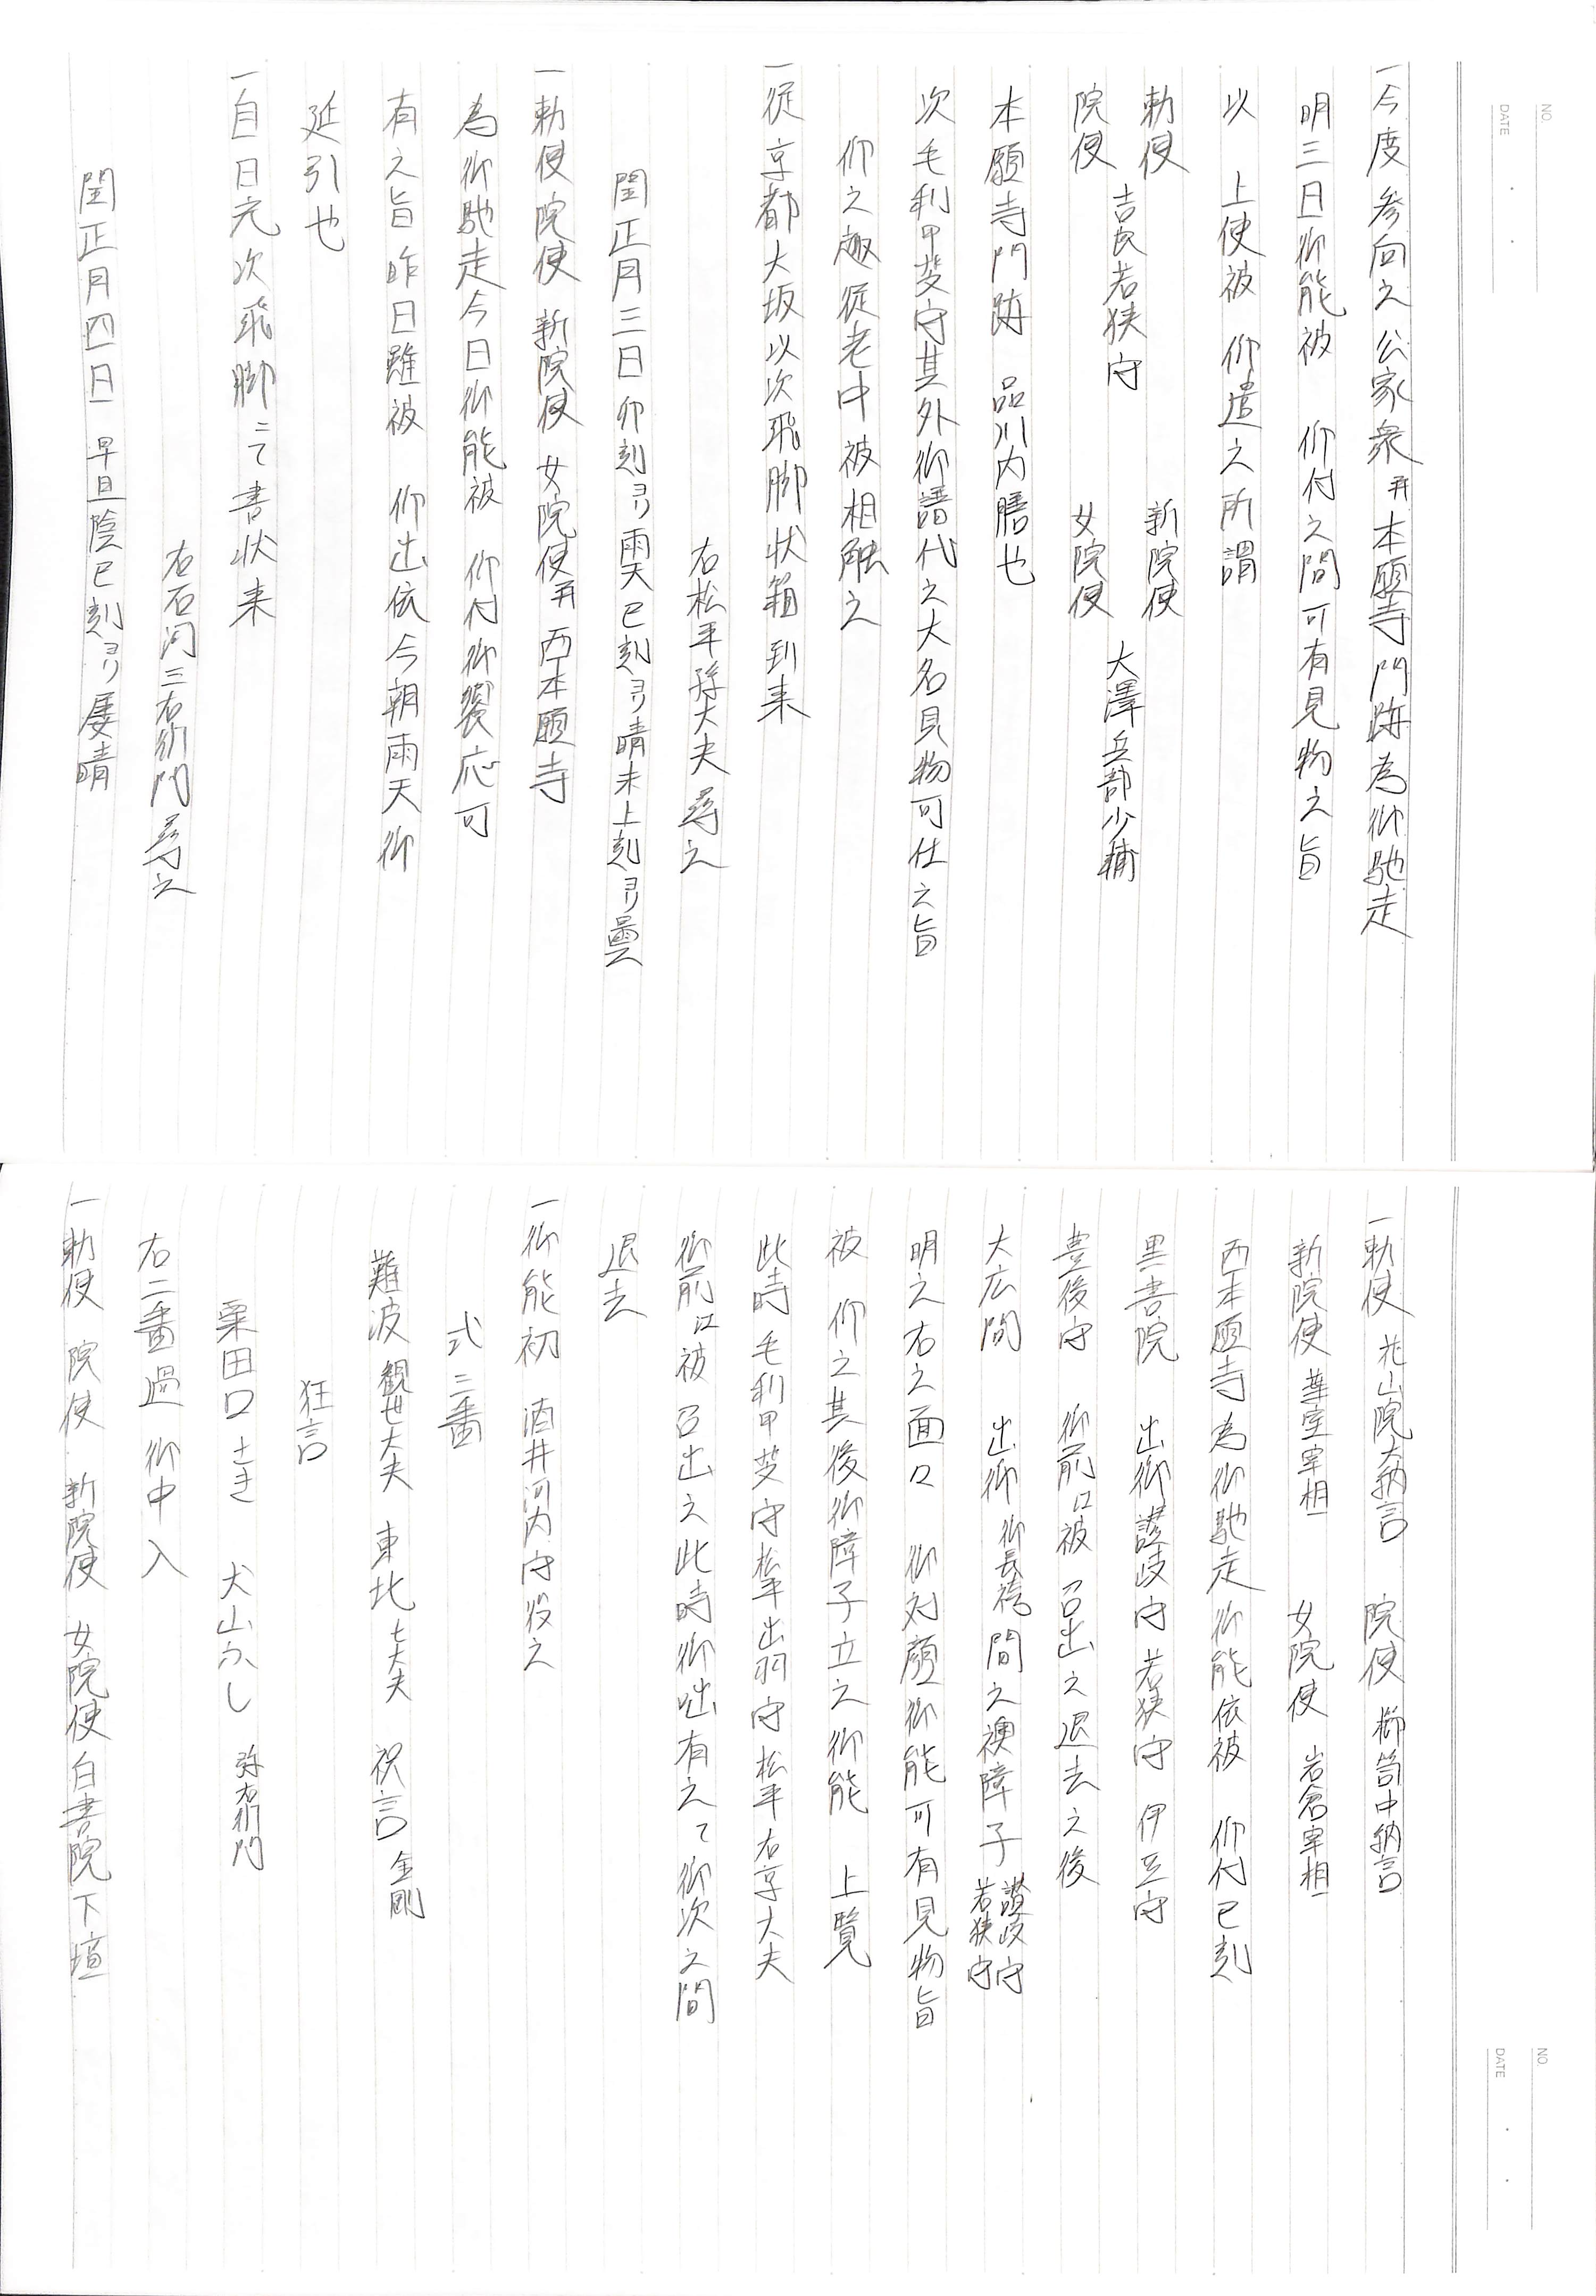 NO.
DATE
一今度参向之公家衆并本願寺門跡為御馳走
明三日御能被 仰付之間可有見物之旨
以 上使被 仰遣之所謂
勅使 新院使
吉良若狭守 大澤兵部少輔
院使 女院使
本願寺門跡 品川内膳也
次毛利甲斐守其外御譜代之大名見物可仕之旨
仰之趣従老中被相触之
一従京都大坂以次飛脚状箱到来
右松平孫大夫尋之
閏正月三日卯刻ヨリ雨天巳刻ヨリ晴未上刻ヨリ曇
一勅使院使 新院使 女院使并西本願寺
為御馳走今日御能被 仰付御饗応可
有之旨昨日雖被 仰出依今朝雨天御
延引也
一自日光次飛脚ニて書状来
右石河三右衛門尋之
閏正月四日 早旦陰巳刻ヨリ属晴
NO.
DATE
一勅使 花山院大納言 院使 櫛笥中納言
新院使 葉室宰相 女院使 岩倉宰相
西本願寺為御馳走御能依被 仰付巳刻
黒書院 出御讃岐守 若狭守 伊豆守
豊後守 御前江被 召出之退去之後
大広間 出御 御長袴 間之襖障子 讃岐守 若狭守
明之右之面々 御対顔御能可有見物旨
被 仰之其後御障子立之御能 上覧
此時毛利甲斐守松平出羽守松平右京大夫
御前江被 召出之此時御咄有之て御次之間
退去
一御能初 酒井河内守役之
式三番
難波 観世大夫 東北 七大夫 祝言 金剛
狂言
粟田口 さき 犬山ふし 弥右衛門
右二番過 御中入
一勅使 院使 新院使 女院使白書院下壇